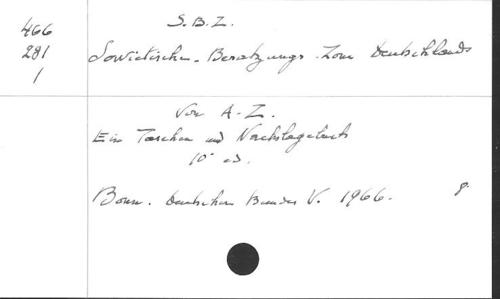 466
281
1
S.B.Z.
Sowietische-Besatzungs-Zone Deutschlands
Von A-Z.
Ein Taschen und Nachslagebuch
10e ed.
Bonn. Deutschen Bundes V. 1966.
8.